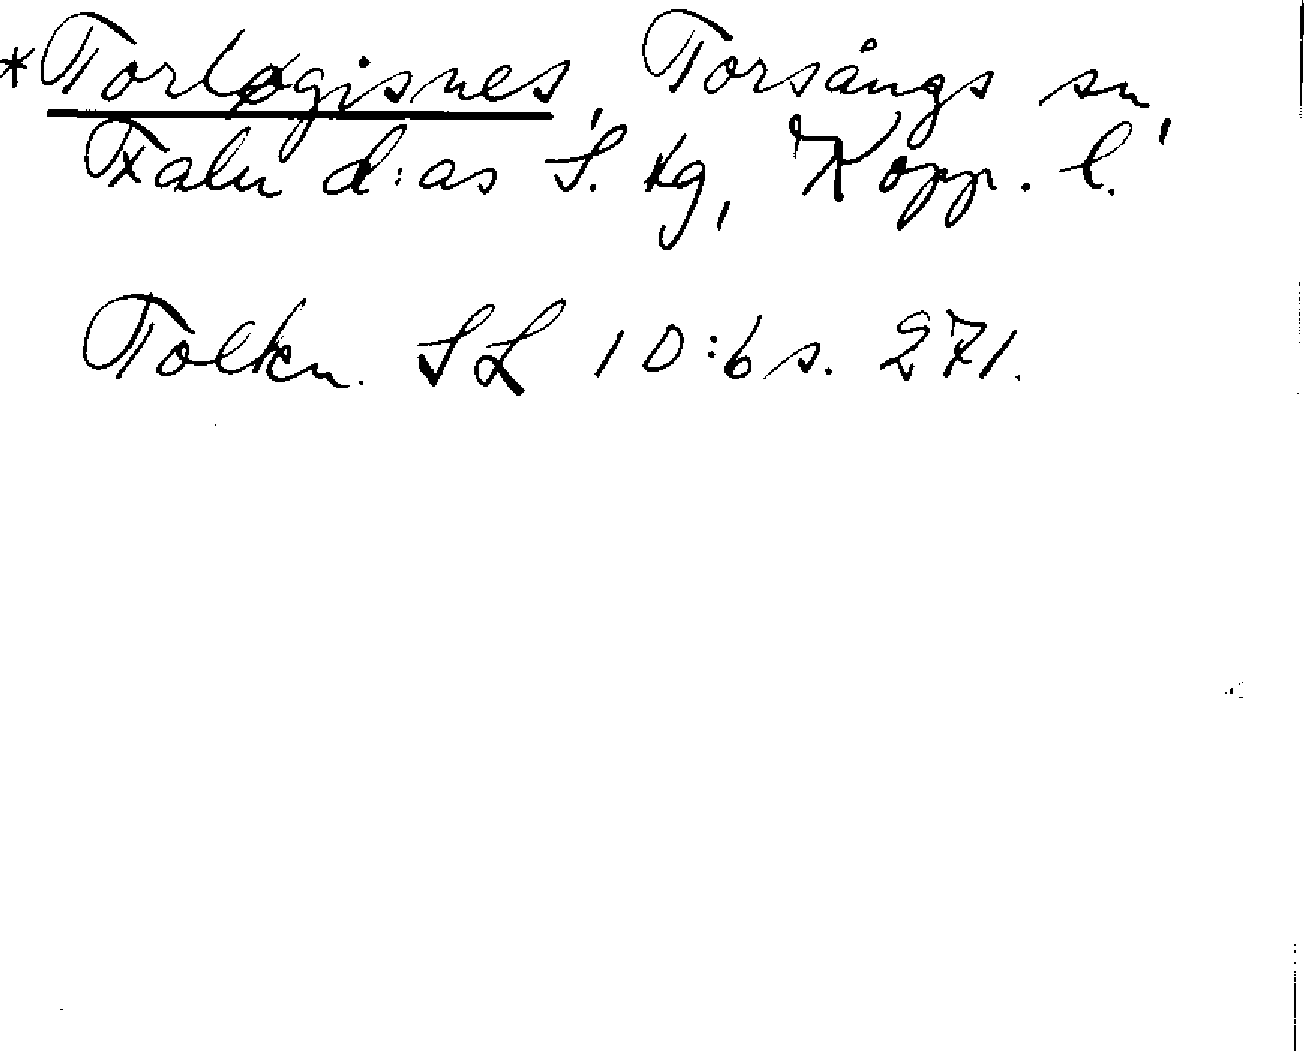 *Torløgisnes, Torsångs sn,
Falu d:as S. tg, Kopp. l.
Tolkn. SL 10:6 s. 271.